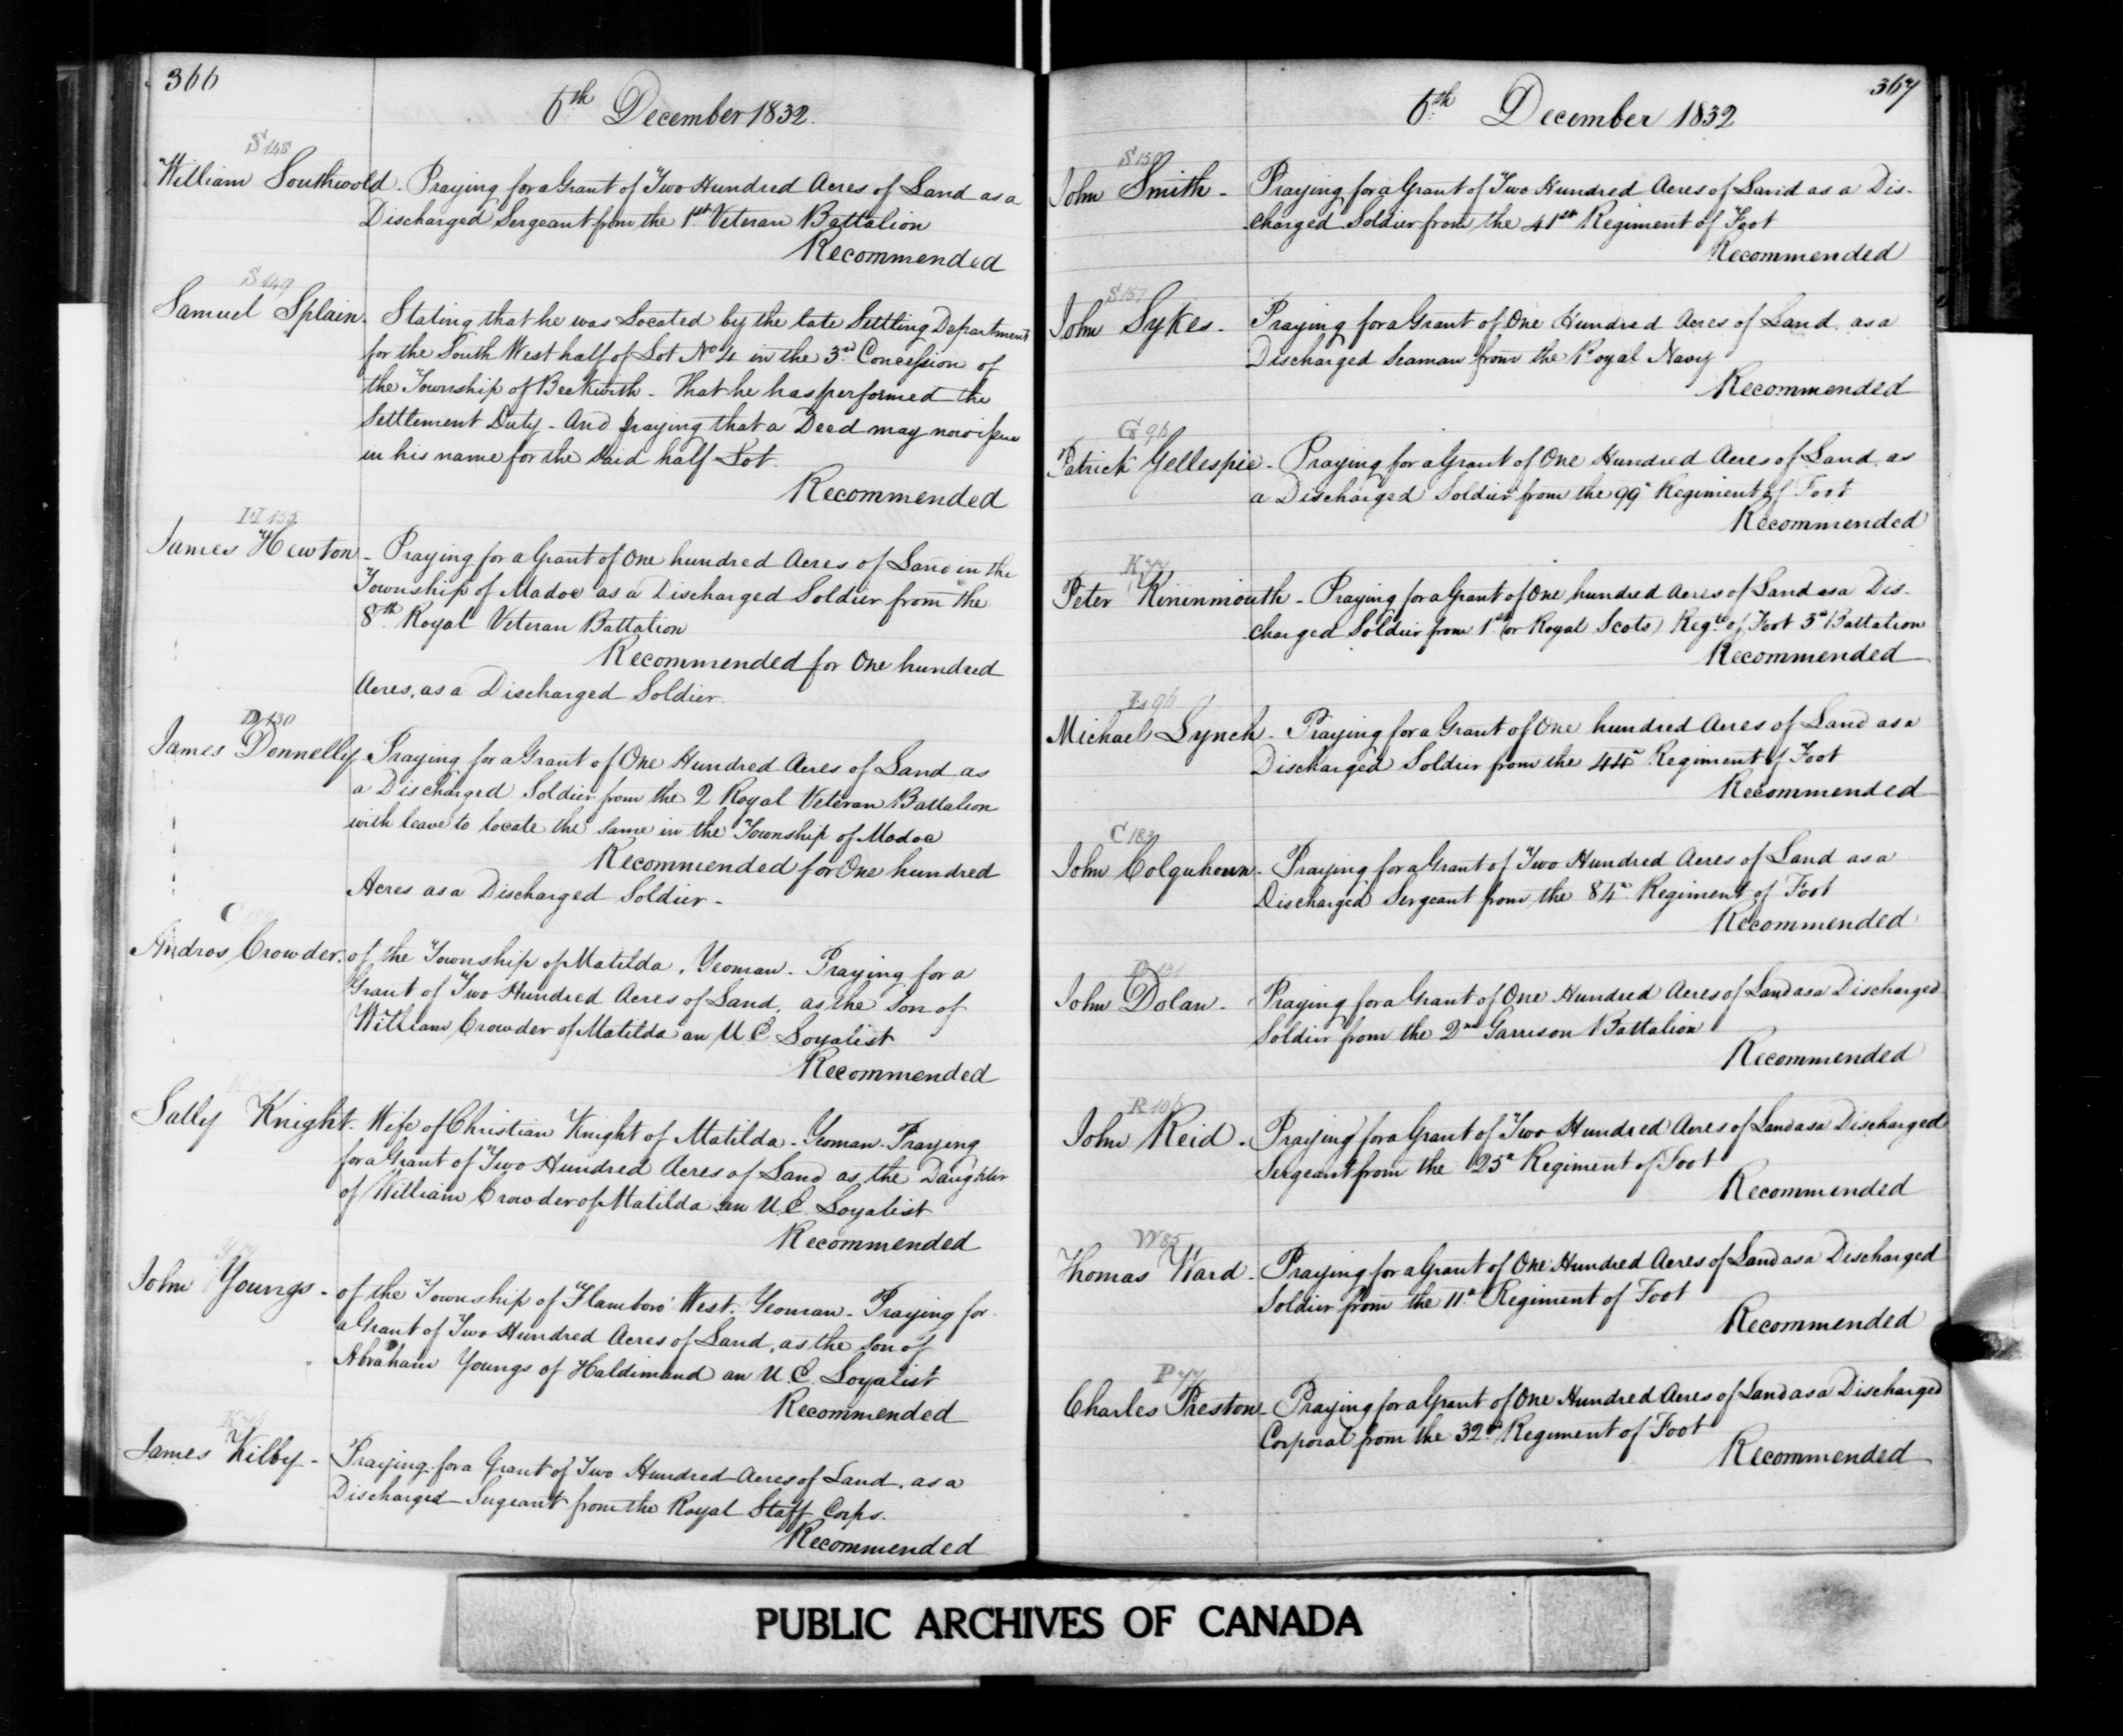 366
6th December 1832.
S 148
William Southwold - Praying for a Grant of Two Hundred Acres of Land as a
Discharged Sergeant from the 1st Veteran Battalion
Recommended
S 149
Samuel Splain. Stating that he was Located by the late Settling Department
for the South West half of Lot No 4 in the 3rd Concession of
the Township of Beckwith - That he has performed the
Settlement Duty - And praying that a Deed may now issue
in his name for the said half Lot.
Recommended
H 152
James Hewton - Praying for a Grant of One hundred Acres of Land in the
Township of Madoc as a Discharged Soldier from the
8th Royal Veteran Battalion
Recommended for One hundred
Acres, as a Discharged Soldier.
D 130
James Donnelly Praying for a Grant of One Hundred Acres of Land as
a Discharged Soldier from the 2 Royal Veteran Battalion
with leave to locate the same in the Township of Madoc
Recommended for One hundred
Acres as a Discharged Soldier -
C
Andros Crowder. of the Township of Matilda, Yeoman - Praying for a
Grant of Two Hundred Acres of Land, as the Son of
William Crowder of Matilda an U E Loyalist
Recommended
Sally Knight - Wife of Christian Knight of Matilda - Yeoman - Praying
for a Grant of Two Hundred Acres of Land as the Daughter
of William Crowder of Matilda an U. E. Loyalist
Recommended
John Youngs - of the Township of Flamboro' West. Yeoman - Praying for
a Grant of Two Hundred Acres of Land, as the Son of
Abraham Youngs of Haldimand an U. E. Loyalist
Recommended
James Kilby - Praying for a Grant of Two Hundred Acres of Land, as a
Discharged Sergeant from the Royal Staff Corps.
Recommended
367
6th December 1832
S 150
John Smith - Praying for a Grant of Two Hundred Acres of Land as a Dis-
charged Soldier from the 41st Regiment of Foot
Recommended
S 151
John Sykes - Praying for a Grant of One Hundred Acres of Land, as a
Discharged Seaman from the Royal Navy
Recommended
G 96
Patrick Gellespie - Praying for a Grant of One Hundred Acres of Land, as
a Discharged Soldier from the 99th Regiment of Foot
Recommended
K 77
Peter Kininmouth - Praying for a Grant of One hundred Acres of Land as a Dis-
charged Soldier from 1st (or Royal Scots) Regt. of Foot 3d Battalion
Recommended
L 96
Michael Lynch - Praying for a Grant of One hundred Acres of Land as a
Discharged Soldier from the 44th Regiment of Foot
Recommended
C 183
John Colquhoun - Praying for a Grant of Two Hundred Acres of Land as a
Discharged Sergeant from the 84th Regiment of Foot
Recommended
D 131
John Dolan - Praying for a Grant of One Hundred Acres of Land as a Discharged
Soldier from the 2nd Garrison Battalion
Recommended
R 106
John Reid - Praying for a Grant of Two Hundred Acres of Land as a Discharged
Sergeant from the 25th Regiment of Foot
Recommended
W 85
Thomas Ward - Praying for a Grant of One Hundred Acres of Land as a Discharged
Soldier from the 11th Regiment of Foot
Recommended
P 77
Charles Preston - Praying for a Grant of One Hundred Acres of Land as a Discharged
Corporal from the 32d Regiment of Foot
Recommended
PUBLIC ARCHIVES OF CANADA